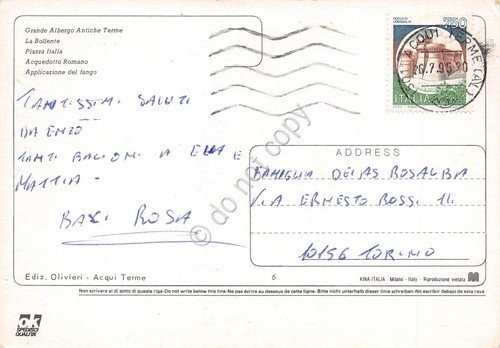 Grande Albergo Antiche Terme
La Bollente
Piazza Italia
Acquedotto Romano
Applicazione del fango
750
ITALIA
ACQUI TERME (AL)
TANTISSIMI SALUTI
DA ENZO
TANTI BACIONI A ELIA E
MATTIA
BACI ROSA
ADDRESS
FAMIGLIA DEIAS ROSALBA
VIA ERNESTO ROSSI 14
10156 TORINO
© do not copy
Ediz. Olivieri - Acqui Terme
6
KINA ITALIA - Milano - Italy - Riproduzione vietata
Non scrivere al di sotto di questa riga-Do not write below this line-Ne pas écrire au dessous de cette ligne- Bitte nicht unterhalb dieser linie schreiben-No escribir debajo de esta raya
SPEDISCI
QUALITA'